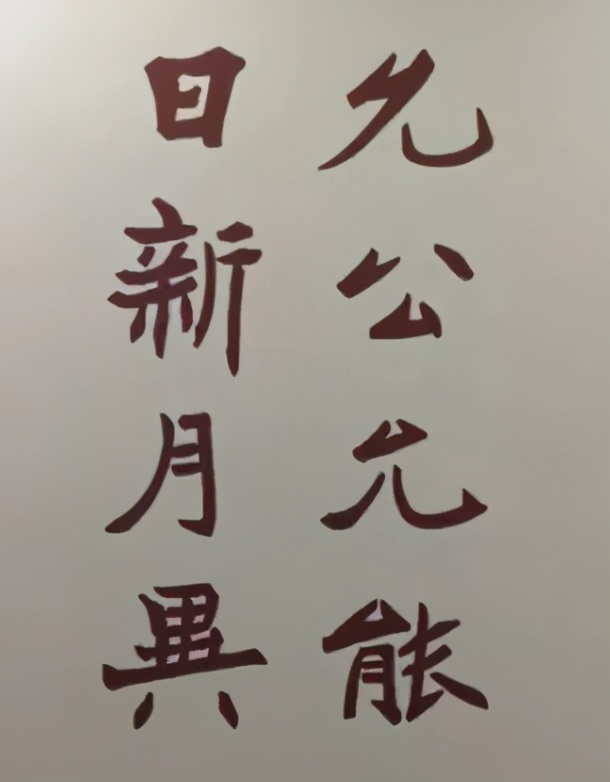 允公允能
日新月異